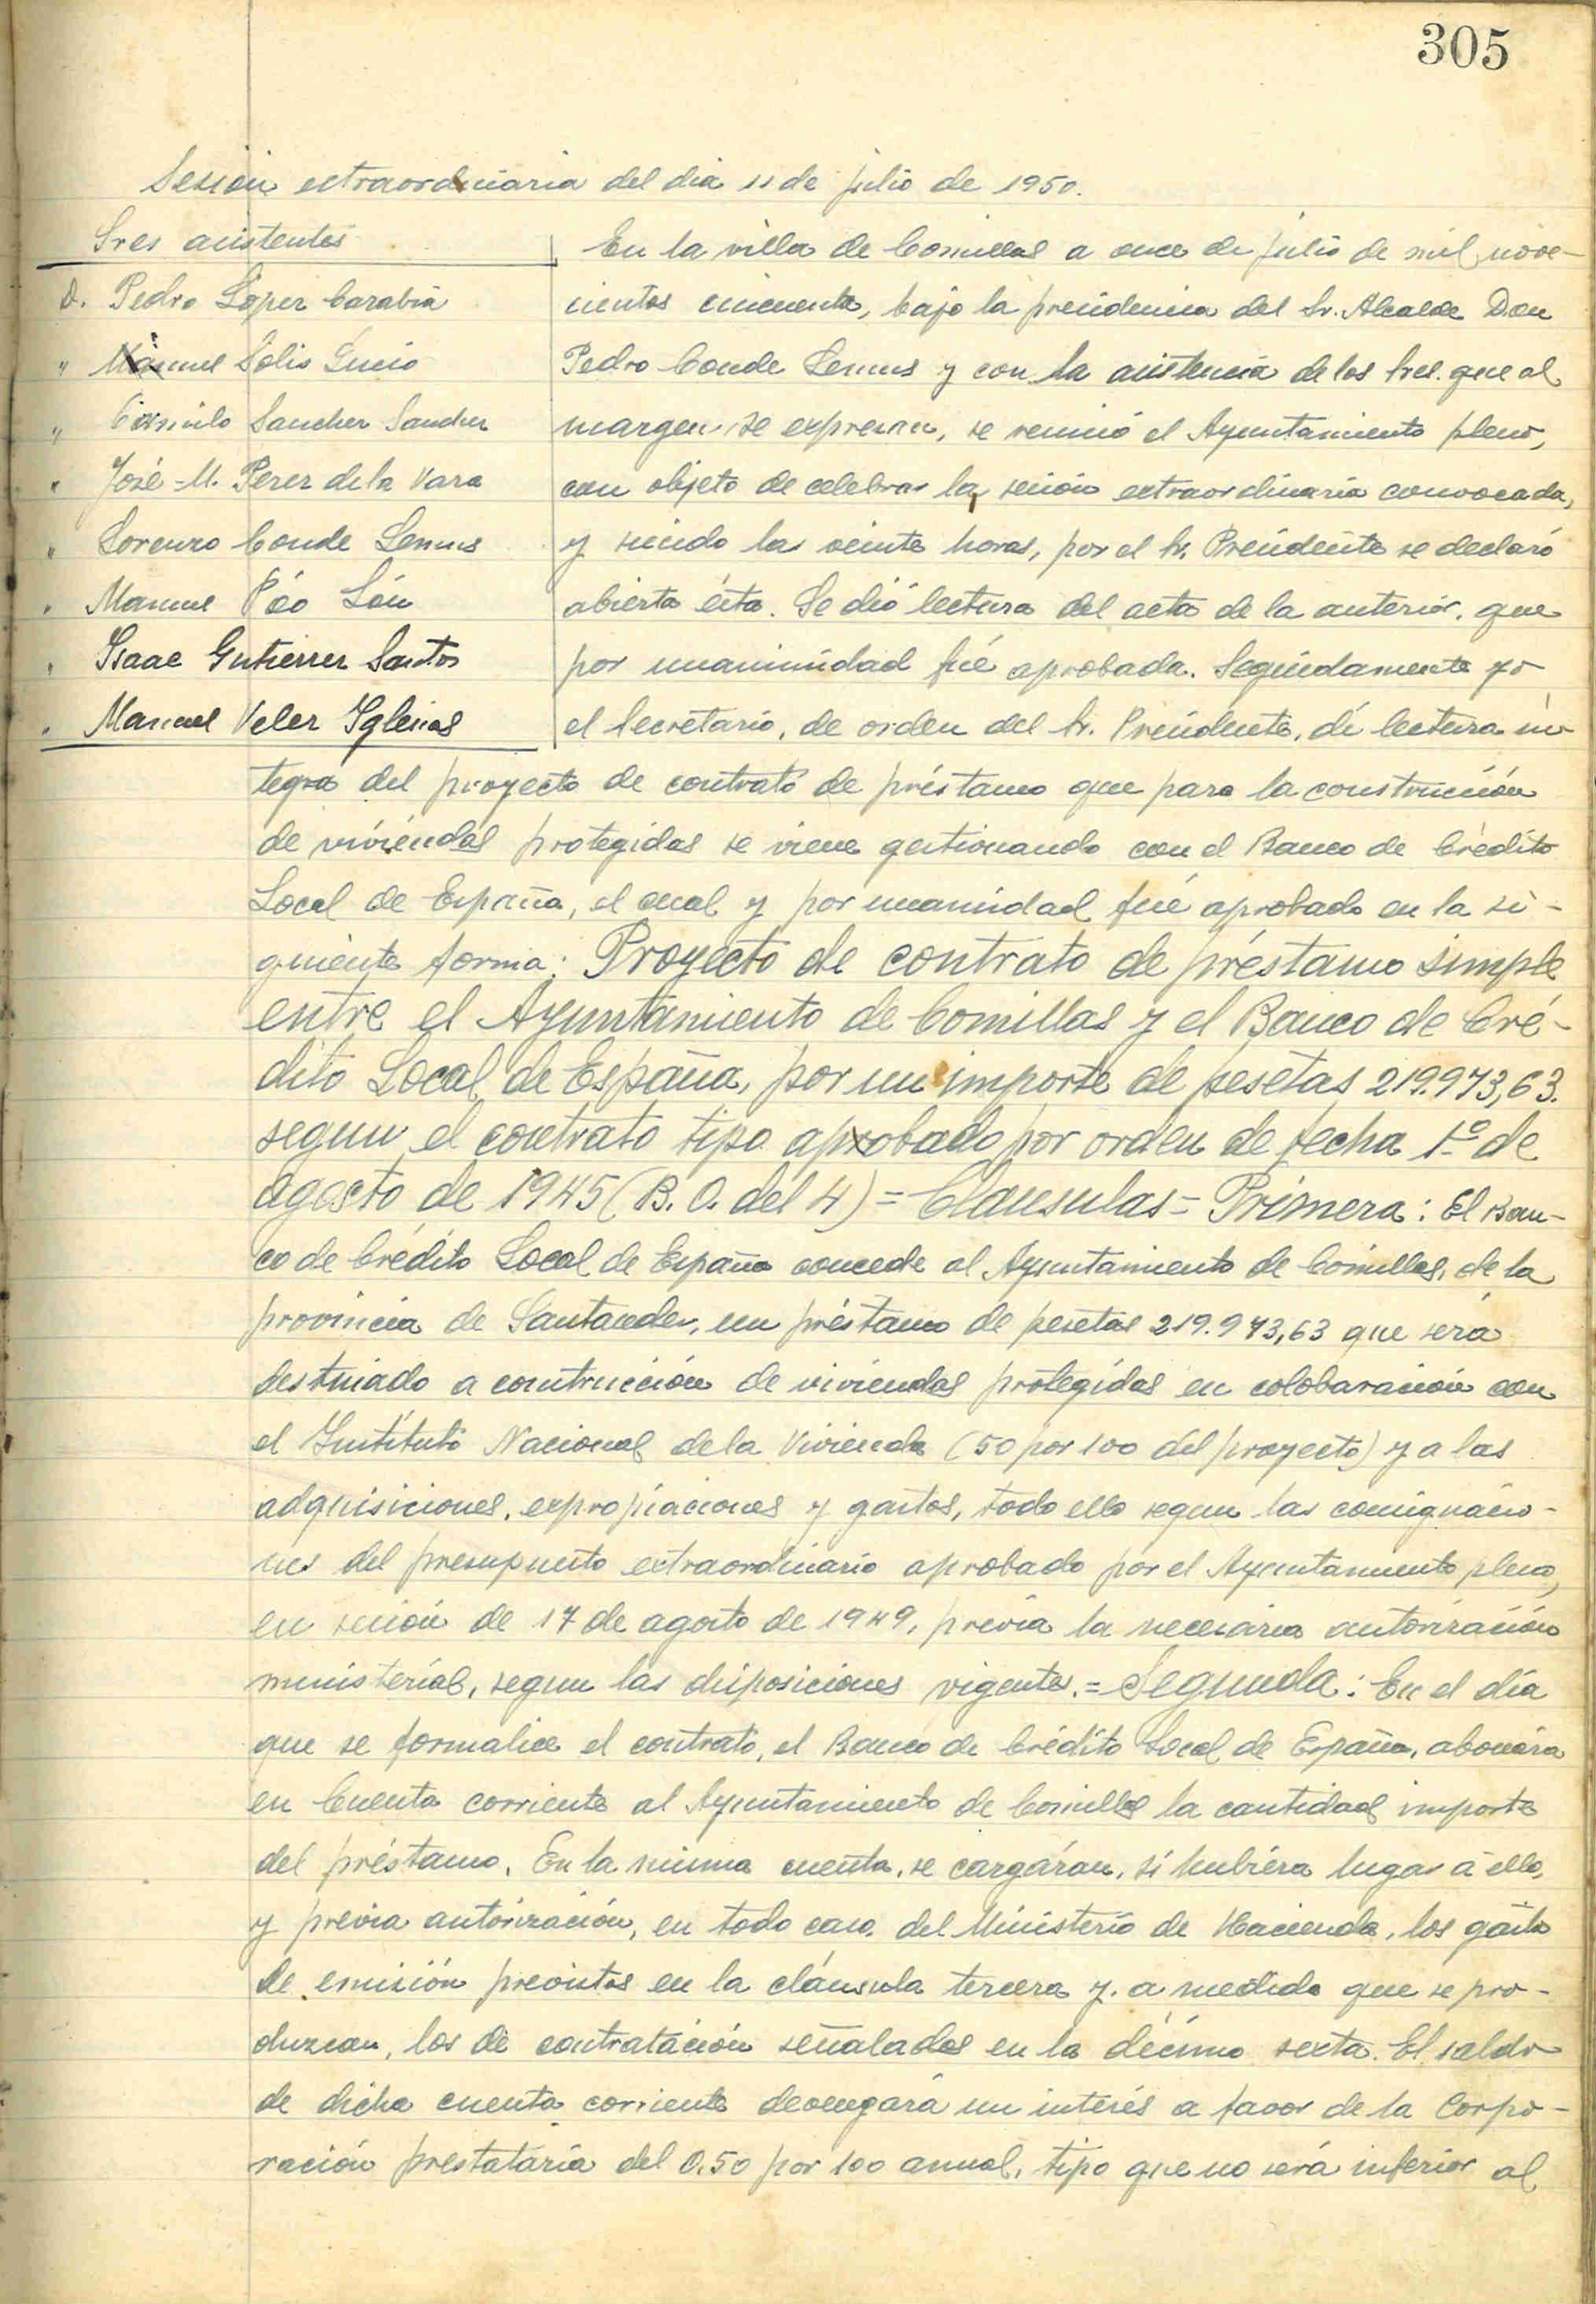 305
Sesión extraordinaria del dia 11 de julio de 1950.
Sres asistentes
D. Pedro López Carabia
" Manuel Solis Lucio
" Camilo Sanchez Sanchez
" José-M. Perez de la Vara
" Lorenzo Conde Lemus
" Manuel Póo
" Isaac Gutierrez Santos
" Manuel Velez Yglesias
En la villa de Comillas a once de julio de mil nove-
cientos cincuenta, bajo la presidencia del Sr. Alcalde Don
Pedro Conde Lemus y con la asistencia de los Sres. que al
margen se expresan, se reunió el Ayuntamiento pleno,
con objeto de celebrar la sesión extraordinaria convocada,
y siendo las veinte horas, por el Sr. Presidente se declaró
abierta ésta. Se dió lectura del acta de la anterior, que
por unanimidad fué aprobada. Seguidamente yo
el Secretario, de orden del Sr. Presidente, dí lectura ín-
tegra del proyecto de contrato de préstamo que para la construcción
de viviendas protegidas se viene gestionando con el Banco de Crédito
Local de España, el cual y por unanimidad fué aprobado en la si-
guiente forma: Proyecto de contrato de préstamo simple
entre el Ayuntamiento de Comillas y el Banco de Cré-
dito Local de España, por un importe de pesetas 219.973,63.
segun el contrato tipo aprobado por orden de fecha 1º de
agosto de 1945 (B. O. del 4) = Clausulas = Primera: El Ban-
co de Crédito Local de España concede al Ayuntamiento de Comillas, de la
provincia de Santander, un préstamo de pesetas 219.973,63 que será
destinado a contrucción de viviendas protegidas en colobaración con
el Instituto Nacional de la Vivienda (50 por 100 del proyecto) y a las
adquisiciones, expropiaciones y gastos, todo ello segun las consignacio-
nes del presupuesto extraordinario aprobado por el Ayuntamiento pleno,
en sesión de 17 de agosto de 1949, previa la necesaria autorización
ministerial, segun las disposiciones vigentes. = Segunda: En el día
que se formalice el contrato, el Banco de Crédito Local de España, abonará
en Cuenta corriente al Ayuntamiento de Comillas la cantidad importe
del préstamo. En la misma cuenta, se cargáran, si hubiera lugar a ello,
y previa autorización, en todo caso, del Ministerio de Hacienda, los gasto
de emisión previstos en la cláusula tercera y a medida que se pro-
duzcan, los de contratación señalados en la décimo sexta. El saldo
de dicha cuenta corriente devengará un interés a favor de la Corpo-
ración prestataria del 0.50 por 100 anual, tipo que no será inferior al